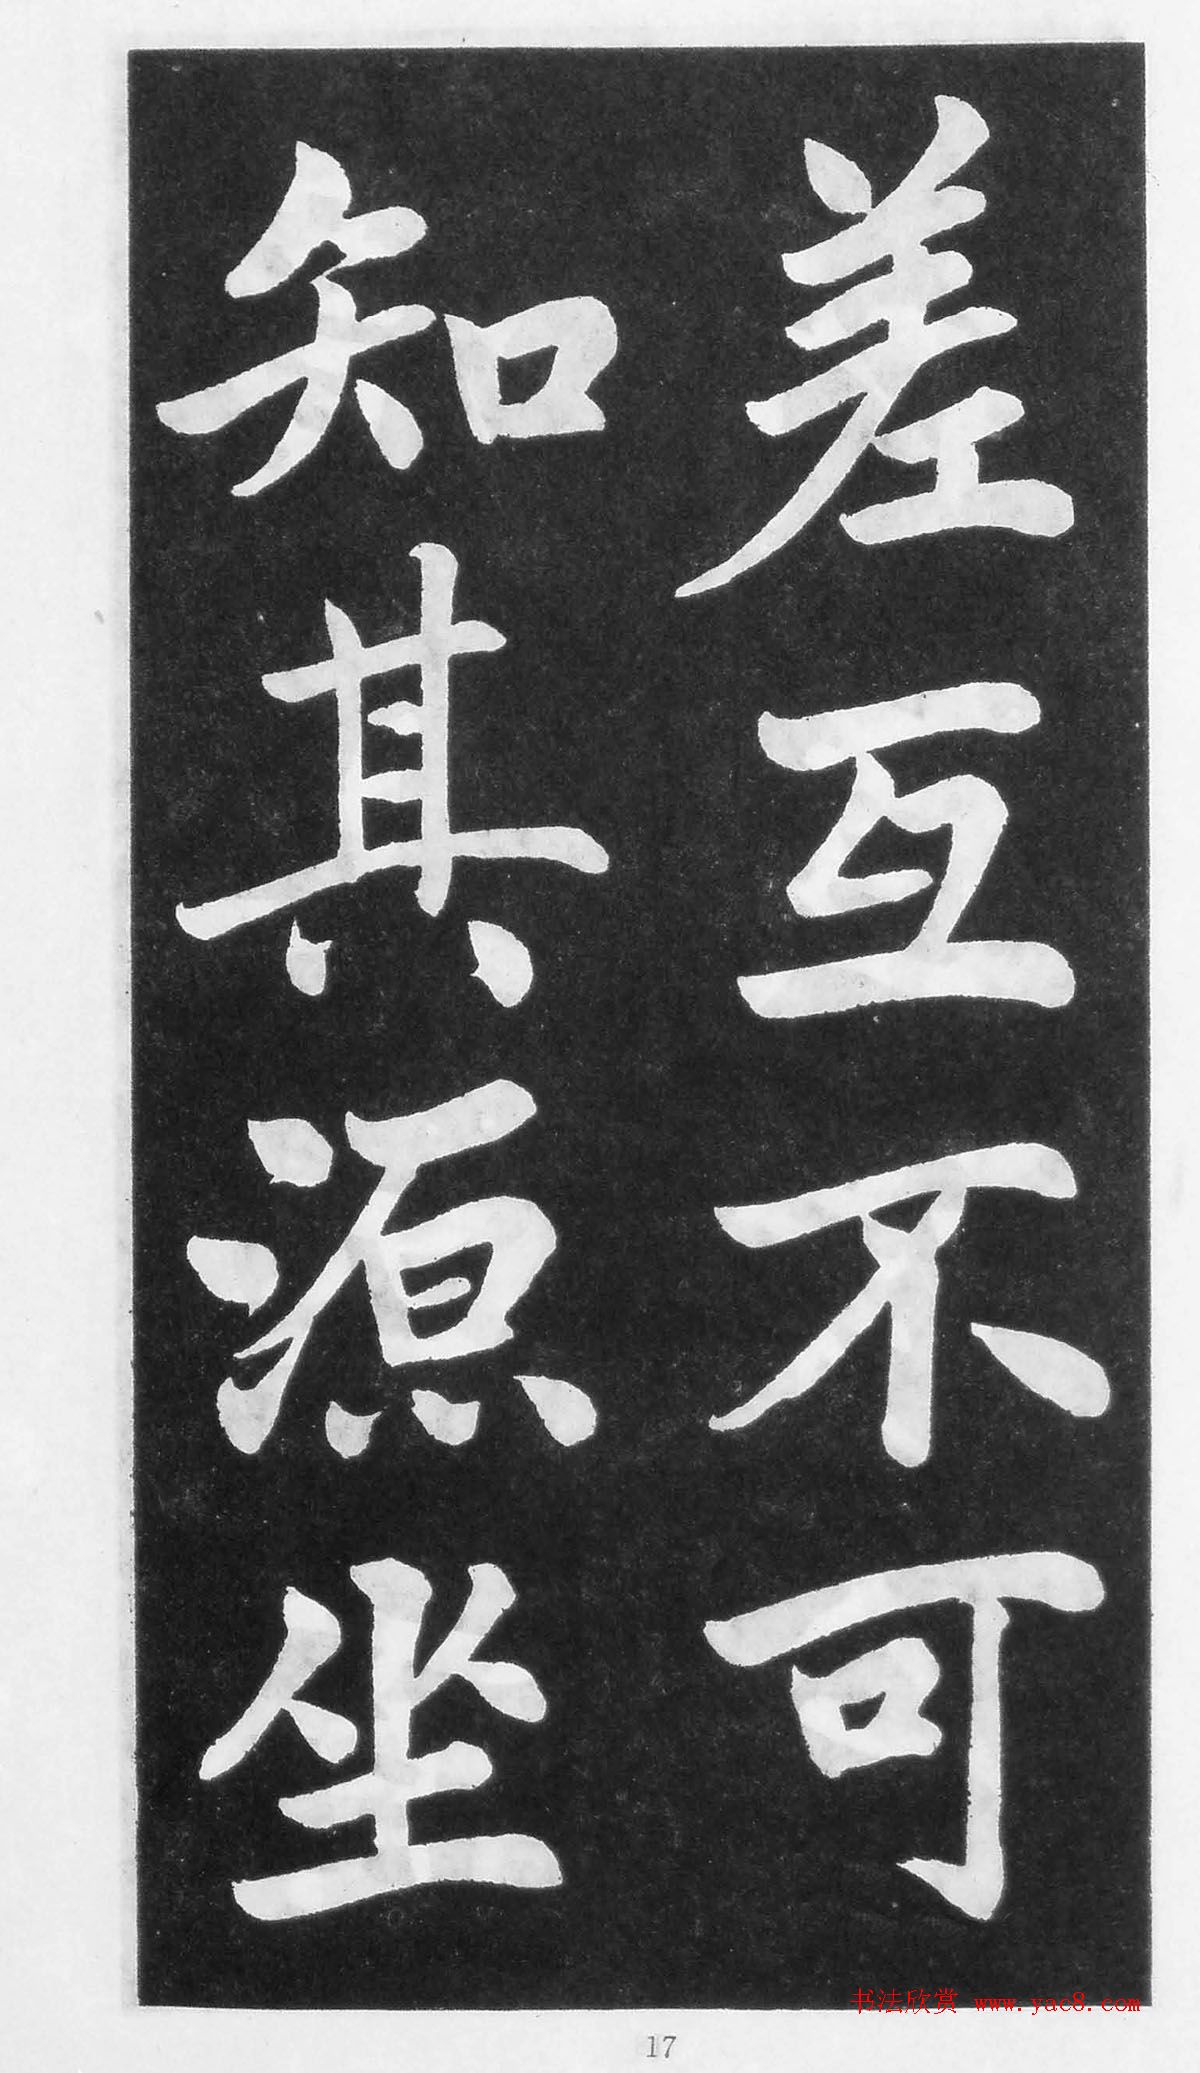 差互不可
知其源坐
书法欣赏 www.yac8.com
17